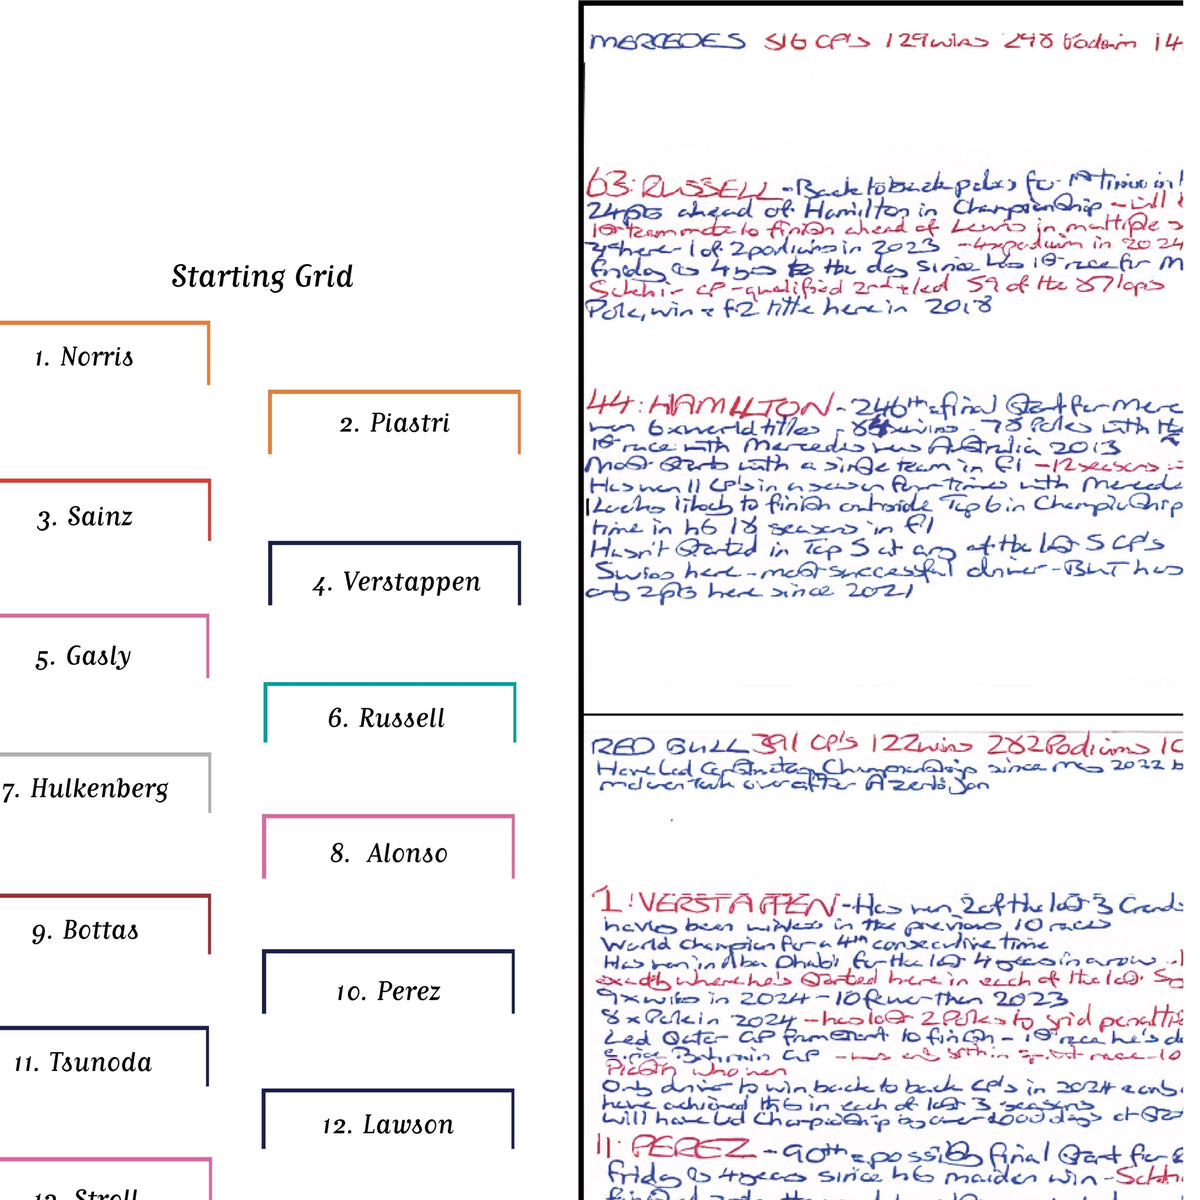 Starting Grid
1. Norris
2. Piastri
3. Sainz
4. Verstappen
5. Gasly
6. Russell
7. Hulkenberg
8. Alonso
9. Bottas
10. Perez
11. Tsunoda
12. Lawson
13. Stroll
MERCEDES 516 GP's 129 wins 298 Podium 14
63: RUSSELL - Back to back poles for 1st time in
24pts ahead of Hamilton in Championship - will
1st teammate to finish ahead of Lewis in multiple
3rd here - 1 of 2 podiums in 2023 - 4x podium in 2024
Friday is 4yrs to the day since his 1st race for M
Sakhir GP - qualified 2nd & led 59 of the 87 laps
Pole, win & F2 title here in 2018
44: HAMILTON - 246th & final Start for Merc
won 6x world titles - 84 wins - 78 Poles with the
1st race with Mercedes was Australia 2013
Most Starts with a single team in F1 - 12 seasons
Has won 11 GP's in a season four times with Mercede
Looks likely to finish outside Top 6 in Championship
time in his 18 seasons in F1
Hasn't Started in Top 5 at any of the last 5 GP's
5 wins here - most successful driver - BUT has
only 2pts here since 2021
RED BULL 391 GP's 122 wins 282 Podiums 10
Have led Constructors Championship since May 2022 b
McLaren took over after Azerbaijan
1: VERSTAPPEN - Has won 2 of the last 3 Grands
having been winless in the previous 10 races
World Champion for a 4th consecutive time
Has won in Abu Dhabi for the last 4 years in a row
exactly where he's Started here in each of the last 5
9x wins in 2024 - 10 fewer than 2023
8x Pole in 2024 - has lost 2 Poles to grid penalti
Led Qatar GP from Start to finish - 1st race he's d
since Bahrain GP - was only 8th in sprint race - 10
Piastri who won
Only driver to win back to back GP's in 2024 & only
have achieved this in each of last 3 seasons
Will have led Championship for over 1000 days at
11: PEREZ - 90th & possibly final Start for
Friday is 4 years since his maiden win - Sakhi